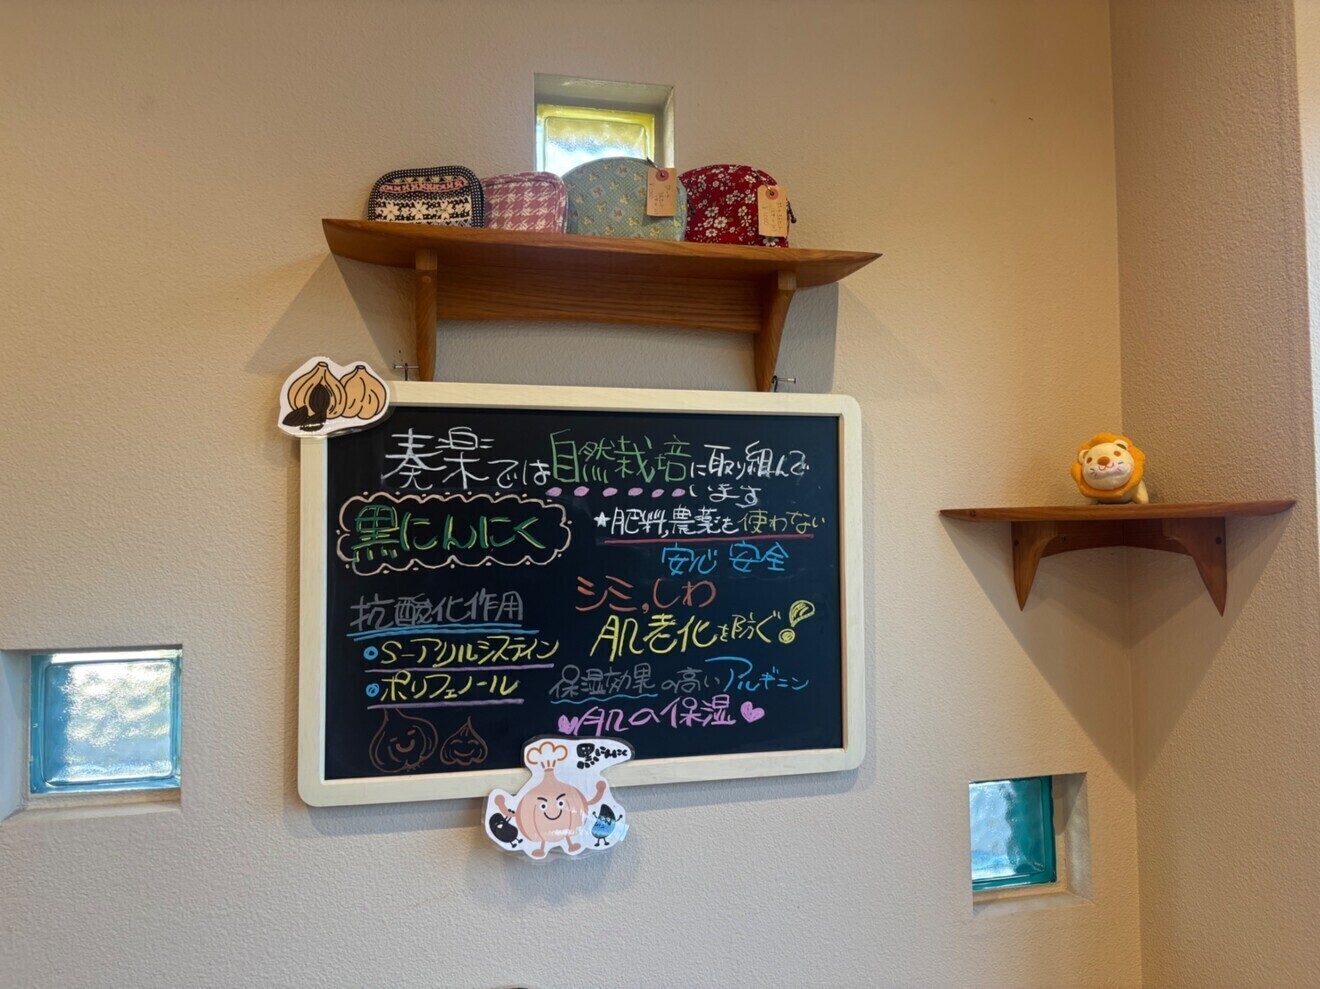 奏楽では自然栽培に取り組んで
います
黒にんにく
★肥料,農薬を使わない
安心 安全
抗酸化作用
・S-アリルシステイン
・ポリフェノール
シミ,しわ
肌老化を防ぐ!
保湿効果の高いアルギニン
♥肌の保湿♥
黒にんにく